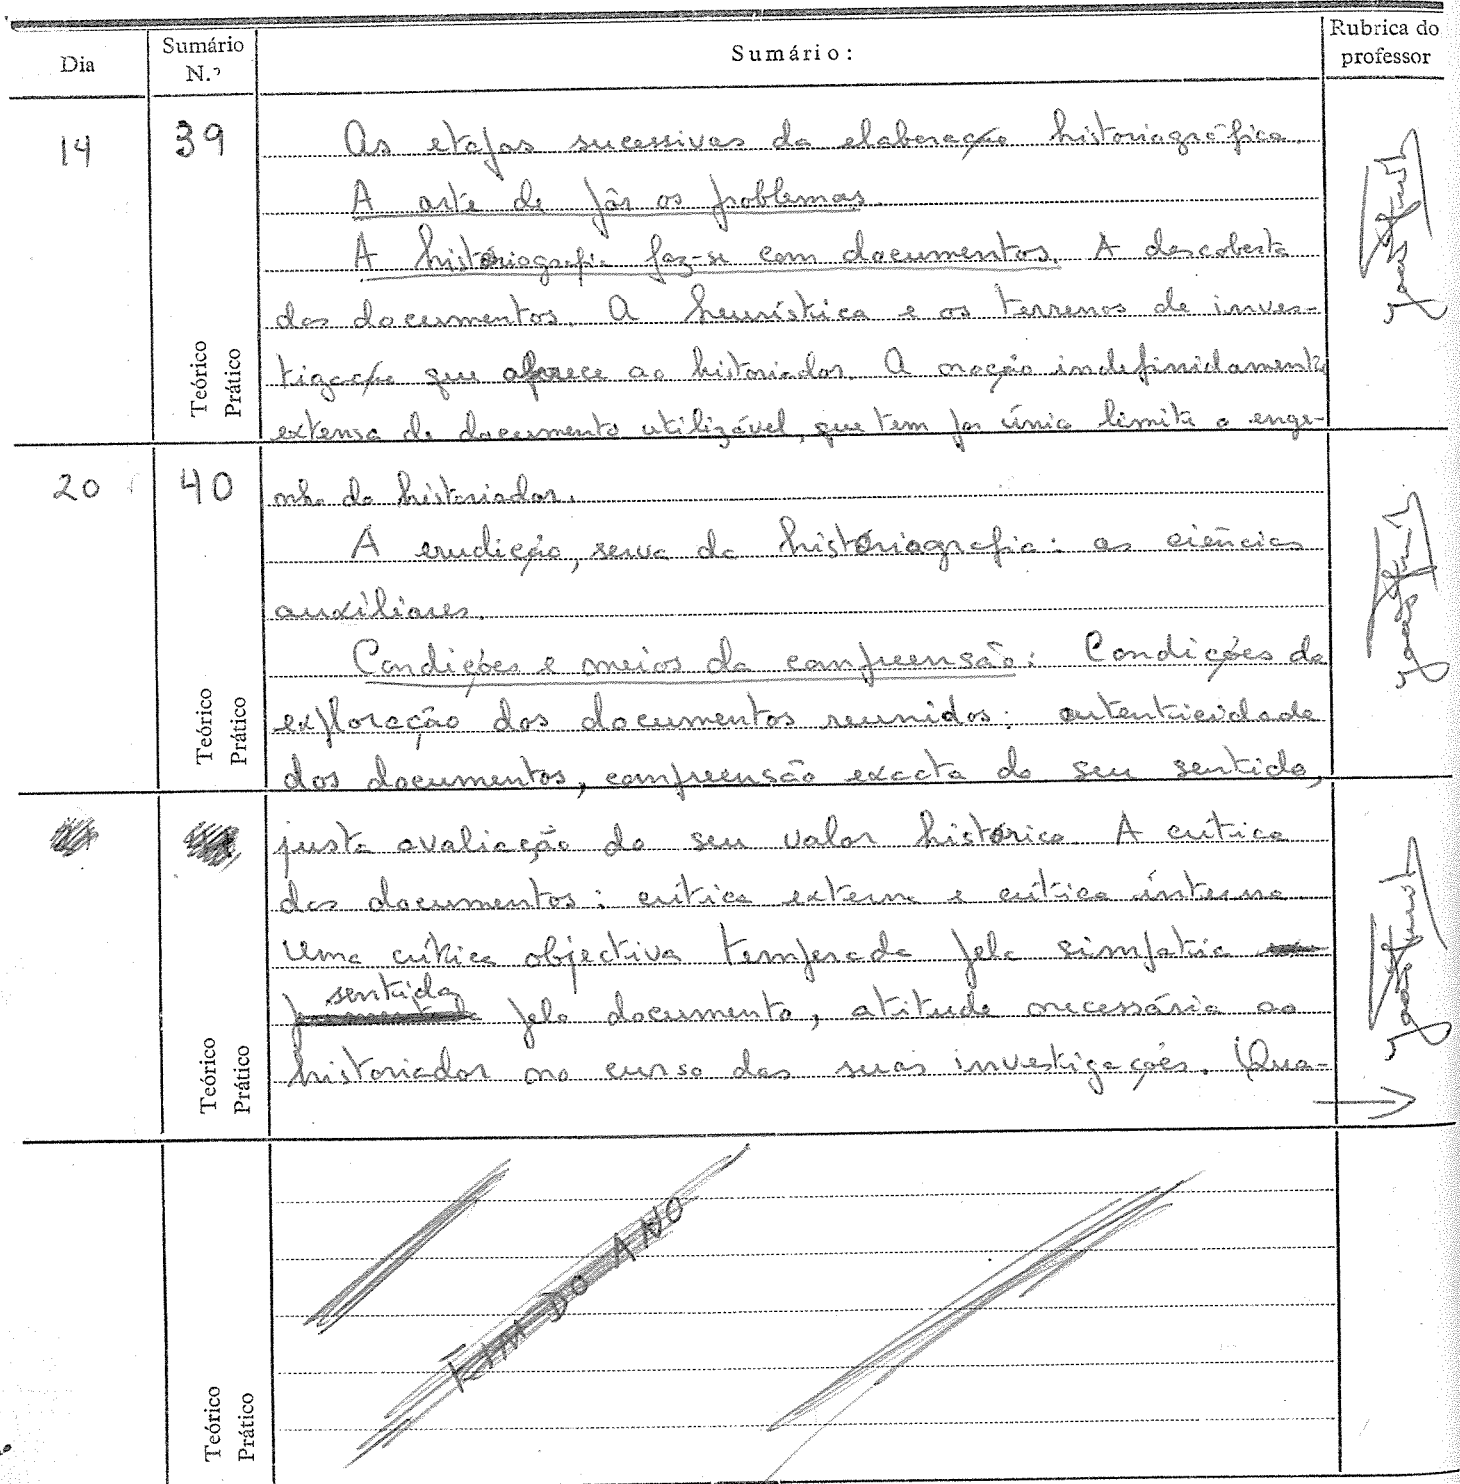 Dia
Sumário N.º
Sumário:
Rubrica do professor
14
39
As etapas sucessivas da elaboração historiográfica.
A arte de pôr os problemas.
A historiografia faz-se com documentos. A descoberta
dos documentos. A heurística e os terrenos de inves-
tigação que oferece ao historiador. A noção indefinidamente
extensa de documento utilizável, que tem por único limite o enge-
Teórico
Prático
20
40
nho do historiador.
A erudição, serva da historiografia: as ciências
auxiliares.
Condições e meios da compreensão: Condições da
exploração dos documentos reunidos: autenticidade
dos documentos, compreensão exacta do seu sentido,
Teórico
Prático
justa avaliação do seu valor histórico. A crítica
dos documentos: crítica externa e crítica interna
Uma crítica objectiva temperada pela simpatia
sentida
pelo documento, atitude necessária ao
historiador no curso das suas investigações. Qua-
Teórico
Prático
FIM DO ANO
Teórico
Prático